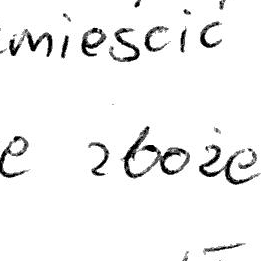 mieścić
zboże